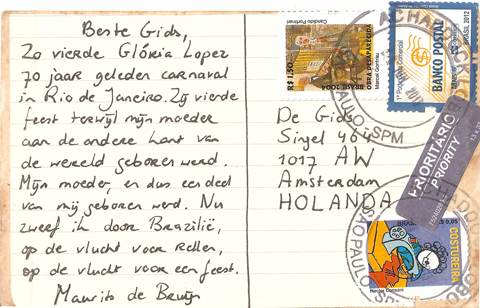 Beste Gids,
Zo vierde Glória Lopez
70 jaar geleden carnaval
in Rio de Janeiro. Zij vierde
feest terwijl mijn moeder
aan de andere kant van
de wereld geboren werd.
Mijn moeder, en dus een deel
van mij geboren werd. Nu
zweef ik door Brazilië,
op de vlucht voor rellen,
op de vlucht voor een feest.
Maurits de Bruijn
De Gids
Singel 464
1017 AW
Amsterdam
HOLANDA
Candido Portinari
R$1,50
BRASIL 2004
OBRA DESAPARECIDA
BANCO POSTAL
BRASIL 2012
PRIORITÁRIO
PRIORITY
SÃO PAULO - SPM
SÃO PAULO
COSTUREIRA